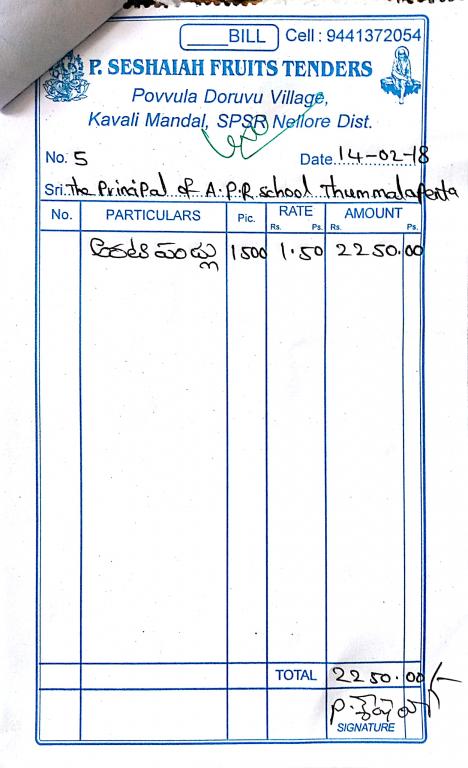 BILL Cell : 9441372054
P. SESHAIAH FRUITS TENDERS
Povvula Doruvu Village,
Kavali Mandal, SPSR Nellore Dist.
No. 5 Date 14-02-18
Sri. The Principal of A.P.R school Thummalapenta
No. PARTICULARS Pic. RATE AMOUNT
Rs. Ps. Rs. Ps.
అరటి పండ్లు 1500 1.50 2250.00
TOTAL 2250.00/-
SIGNATURE